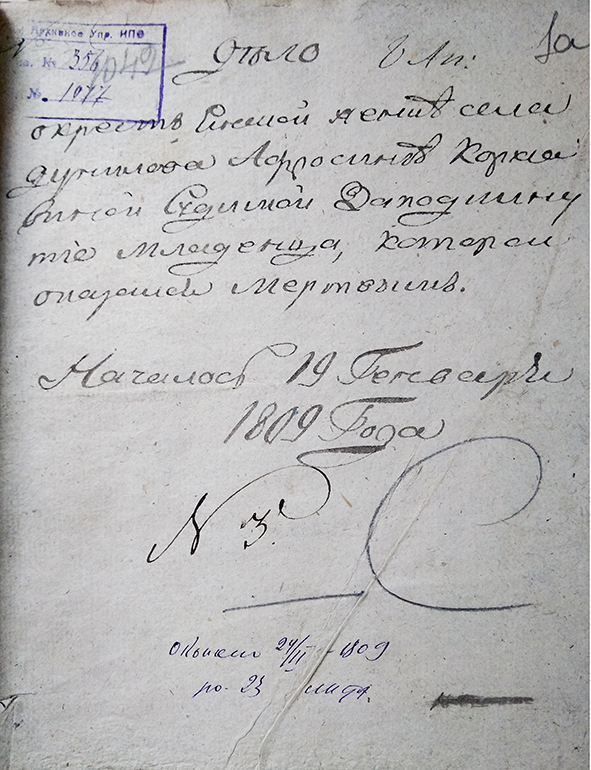 Архивное Упр. ИПО
№ 356
№ 1977
1042
1а
Дѣло
о крестьянской женкѣ села
дунилова Афросинѣ
Судимой За подкину
тіе младенца, которои
оказался мертвымъ.
Началось 19 Генваря
1809 Года
N 3.
Окончено 24/II - 1809
на 23 листах